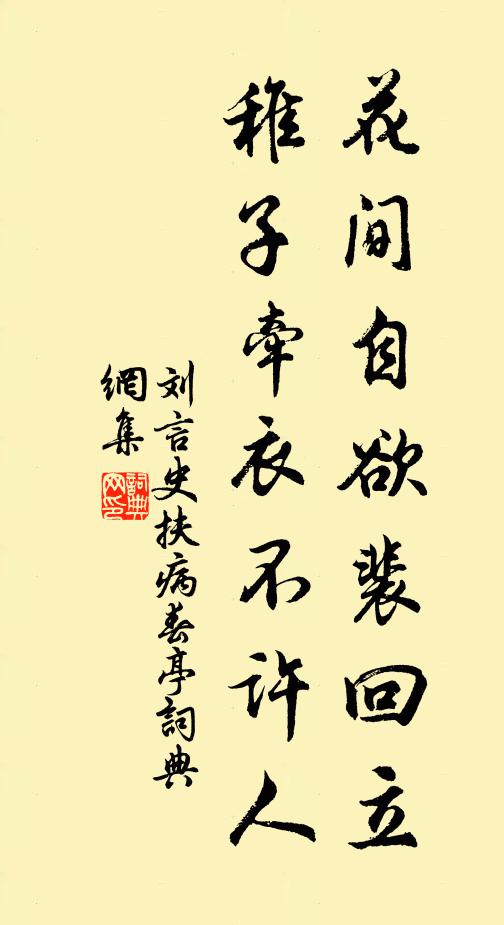 花间自欲裴回立
稚子牵衣不许人
刘言史扶病春亭詞典
網集
詞典
网印